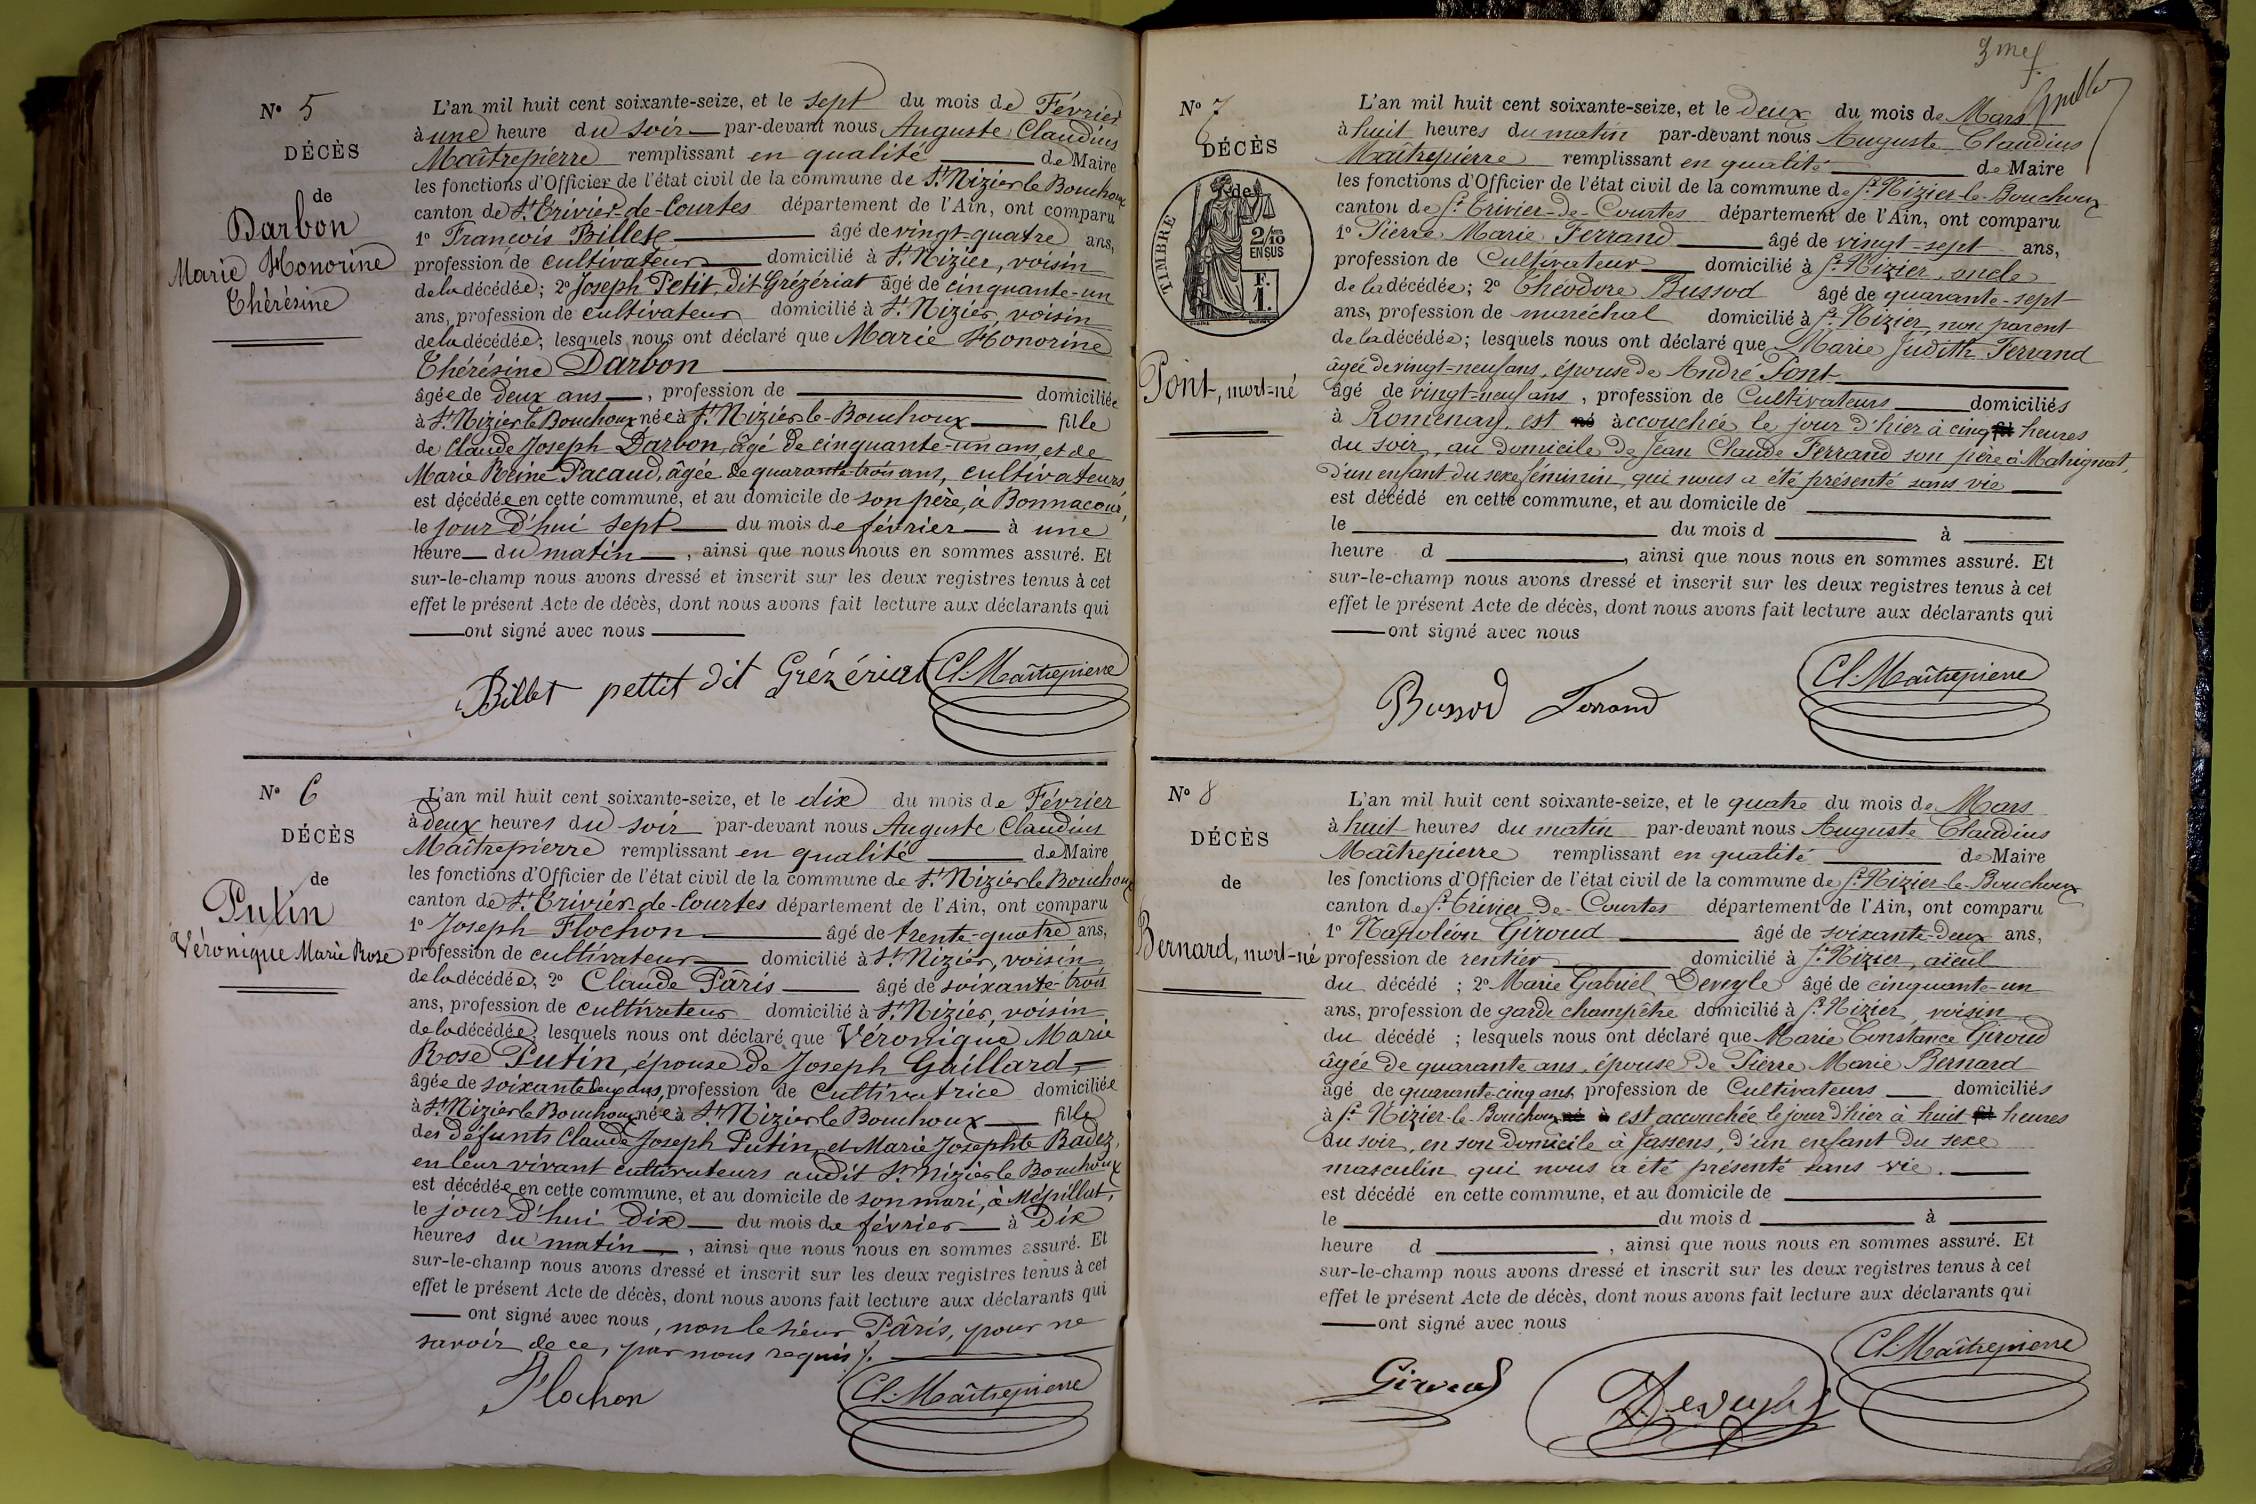 N° 5
DÉCÈS
de
Darbon
Marie Honorine
Thérésine
L'an mil huit cent soixante-seize, et le sept du mois de Février
à une heure du soir par-devant nous Auguste Claudius
Maîtrepierre remplissant en qualité de Maire
les fonctions d'Officier de l'état civil de la commune de St Nizier le Bouchoux
canton de St Trivier-de-Courtes département de l'Ain, ont comparu
1° François Billet âgé de vingt-quatre ans,
profession de cultivateur domicilié à St Nizier, voisin
de la décédée; 2° Joseph Petit, dit Grézériat âgé de cinquante-un
ans, profession de cultivateur domicilié à St Nizier, voisin
de la décédée; lesquels nous ont déclaré que Marie Honorine
Thérésine Darbon
âgée de deux ans, profession de domiciliée
à St Nizier le Bouchoux née à St Nizier le-Bouchoux fille
de Claude Joseph Darbon, âgé de cinquante-un ans, et de
Marie Reine Pacaud, âgée de quarante-trois ans, cultivateurs,
est décédée en cette commune, et au domicile de son père, à Bonnacour,
le jour d'hui sept du mois de février à une
heure du matin, ainsi que nous nous en sommes assuré. Et
sur-le-champ nous avons dressé et inscrit sur les deux registres tenus à cet
effet le présent Acte de décès, dont nous avons fait lecture aux déclarants qui
ont signé avec nous
Billet pettit dit Grézériat Cl. Maîtrepierre
N° 6
DÉCÈS
de
Putin
Véronique Marie Rose
L'an mil huit cent soixante-seize, et le dix du mois de Février
à deux heures du soir par-devant nous Auguste Claudius
Maîtrepierre remplissant en qualité de Maire
les fonctions d'Officier de l'état civil de la commune de St Nizier le Bouchoux
canton de St Trivier de-Courtes département de l'Ain, ont comparu
1° Joseph Flochon âgé de trente-quatre ans,
profession de cultivateur domicilié à St Nizier, voisin
de la décédée, 2° Claude Pâris âgé de soixante-trois
ans, profession de cultivateur domicilié à St Nizier, voisin
de la décédée; lesquels nous ont déclaré que Véronique Marie
Rose Putin, épouse de Joseph Gaillard,
âgée de soixante deux ans, profession de cultivatrice domiciliée
à St Nizier le Bouchoux née à St Nizier le Bouchoux fille
des défunts Claude Joseph Putin et Marie Josephte Badez,
en leur vivant cultivateurs audit St Nizier le Bouchoux
est décédée en cette commune, et au domicile de son mari, à Mépillat,
le jour d'hui Dix du mois de février à Dix
heures du matin, ainsi que nous nous en sommes assuré. Et
sur-le-champ nous avons dressé et inscrit sur les deux registres tenus à cet
effet le présent Acte de décès, dont nous avons fait lecture aux déclarants qui
ont signé avec nous, non le sieur Pâris, pour ne
savoir de ce, par nous requis /.
Flochon Cl. Maîtrepierre
N° 7
DÉCÈS
de
TIMBRE
2/10 EN SUS
F. 1.
Pont, mort-né
L'an mil huit cent soixante-seize, et le deux du mois de Mars
à huit heures du matin par-devant nous Auguste Claudius
Maîtrepierre remplissant en qualité de Maire
les fonctions d'Officier de l'état civil de la commune de St Nizier-le-Bouchoux
canton de St Trivier-de-Courtes département de l'Ain, ont comparu
1° Pierre Marie Ferrand âgé de vingt-sept ans,
profession de Cultivateur domicilié à St Nizier, oncle
de la décédée; 2° Théodore Bussod âgé de quarante-sept
ans, profession de maréchal domicilié à St Nizier, non parent
de la décédée; lesquels nous ont déclaré que Marie Judith Ferrand
âgée de vingt-neuf ans, épouse de André Pont
âgé de vingt-neuf ans, profession de Cultivateurs domiciliés
à Romenay, est né accouchée le jour d'hier à cinq heures
du soir, au domicile de Jean Claude Ferrand son père à Matrignat,
d'un enfant du sexe féminin, qui nous a été présenté sans vie
est décédé en cette commune, et au domicile de
le du mois d à
heure d, ainsi que nous nous en sommes assuré. Et
sur-le-champ nous avons dressé et inscrit sur les deux registres tenus à cet
effet le présent Acte de décès, dont nous avons fait lecture aux déclarants qui
ont signé avec nous
Bussod Ferrand Cl. Maîtrepierre
N° 8
DÉCÈS
de
Bernard, mort-né
L'an mil huit cent soixante-seize, et le quatre du mois de Mars
à huit heures du matin par-devant nous Auguste Claudius
Maîtrepierre remplissant en qualité de Maire
les fonctions d'Officier de l'état civil de la commune de St Nizier-le-Bouchoux
canton de St Trivier-de-Courtes département de l'Ain, ont comparu
1° Napoléon Giroud âgé de soixante-deux ans,
profession de rentier domicilié à St Nizier, aïeul
du décédé; 2° Marie Gabriel Deveyle âgé de cinquante-un
ans, profession de garde champêtre domicilié à St Nizier, voisin
du décédé; lesquels nous ont déclaré que Marie Constance Giroud
âgée de quarante ans, épouse de Pierre Marie Bernard
âgé de quarante-cinq ans profession de Cultivateurs domiciliés
à St Nizier-le-Bouchoux né à est accouchée le jour d'hier à huit heures
du soir, en son domicile à Jassens, d'un enfant du sexe
masculin qui nous a été présenté sans vie.
est décédé en cette commune, et au domicile de
le du mois d à
heure d, ainsi que nous nous en sommes assuré. Et
sur-le-champ nous avons dressé et inscrit sur les deux registres tenus à cet
effet le présent Acte de décès, dont nous avons fait lecture aux déclarants qui
ont signé avec nous
Giroud Deveyle Cl. Maîtrepierre